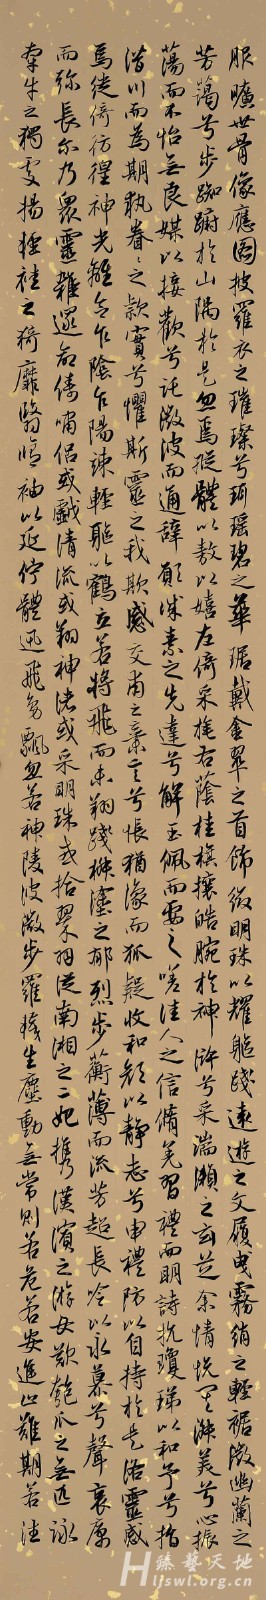 服曠世骨像應圖披羅衣之璀璨兮珥瑤碧之華琚戴金翠之首飾綴明珠以耀軀踐遠遊之文履曳霧綃之輕裾微幽蘭之
芳藹兮步踟躕於山隅於是忽焉縱體以遨以嬉左倚采旄右蔭桂旗攘皓腕於神滸兮采湍瀨之玄芝余情悅其淑美兮心振
蕩而不怡無良媒以接歡兮託微波而通辭願誠素之先達兮解玉佩而要之嗟佳人之信脩羌習禮而明詩抗瓊珶以和予兮指
潛川而為期執眷々之款實兮懼斯靈之我欺感交甫之棄言兮悵猶豫而狐疑收和顏以靜志兮申禮防以自持於是洛靈感
焉徙倚彷徨神光離合乍陰乍陽竦輕軀以鶴立若將飛而未翔踐椒塗之郁烈步蘅薄而流芳超長吟以永慕兮聲哀厲
而彌長爾乃眾靈雜遝命儔嘯侶或戲清流或翔神渚或采明珠或拾翠羽從南湘之二妃攜漢濱之游女歎匏瓜之無匹詠
牽牛之獨處揚輕袿之猗靡翳脩袖以延佇體迅飛鳧飄忽若神陵波微步羅襪生塵動無常則若危若安進止難期若往
臻藝天地
ljswl.org.cn